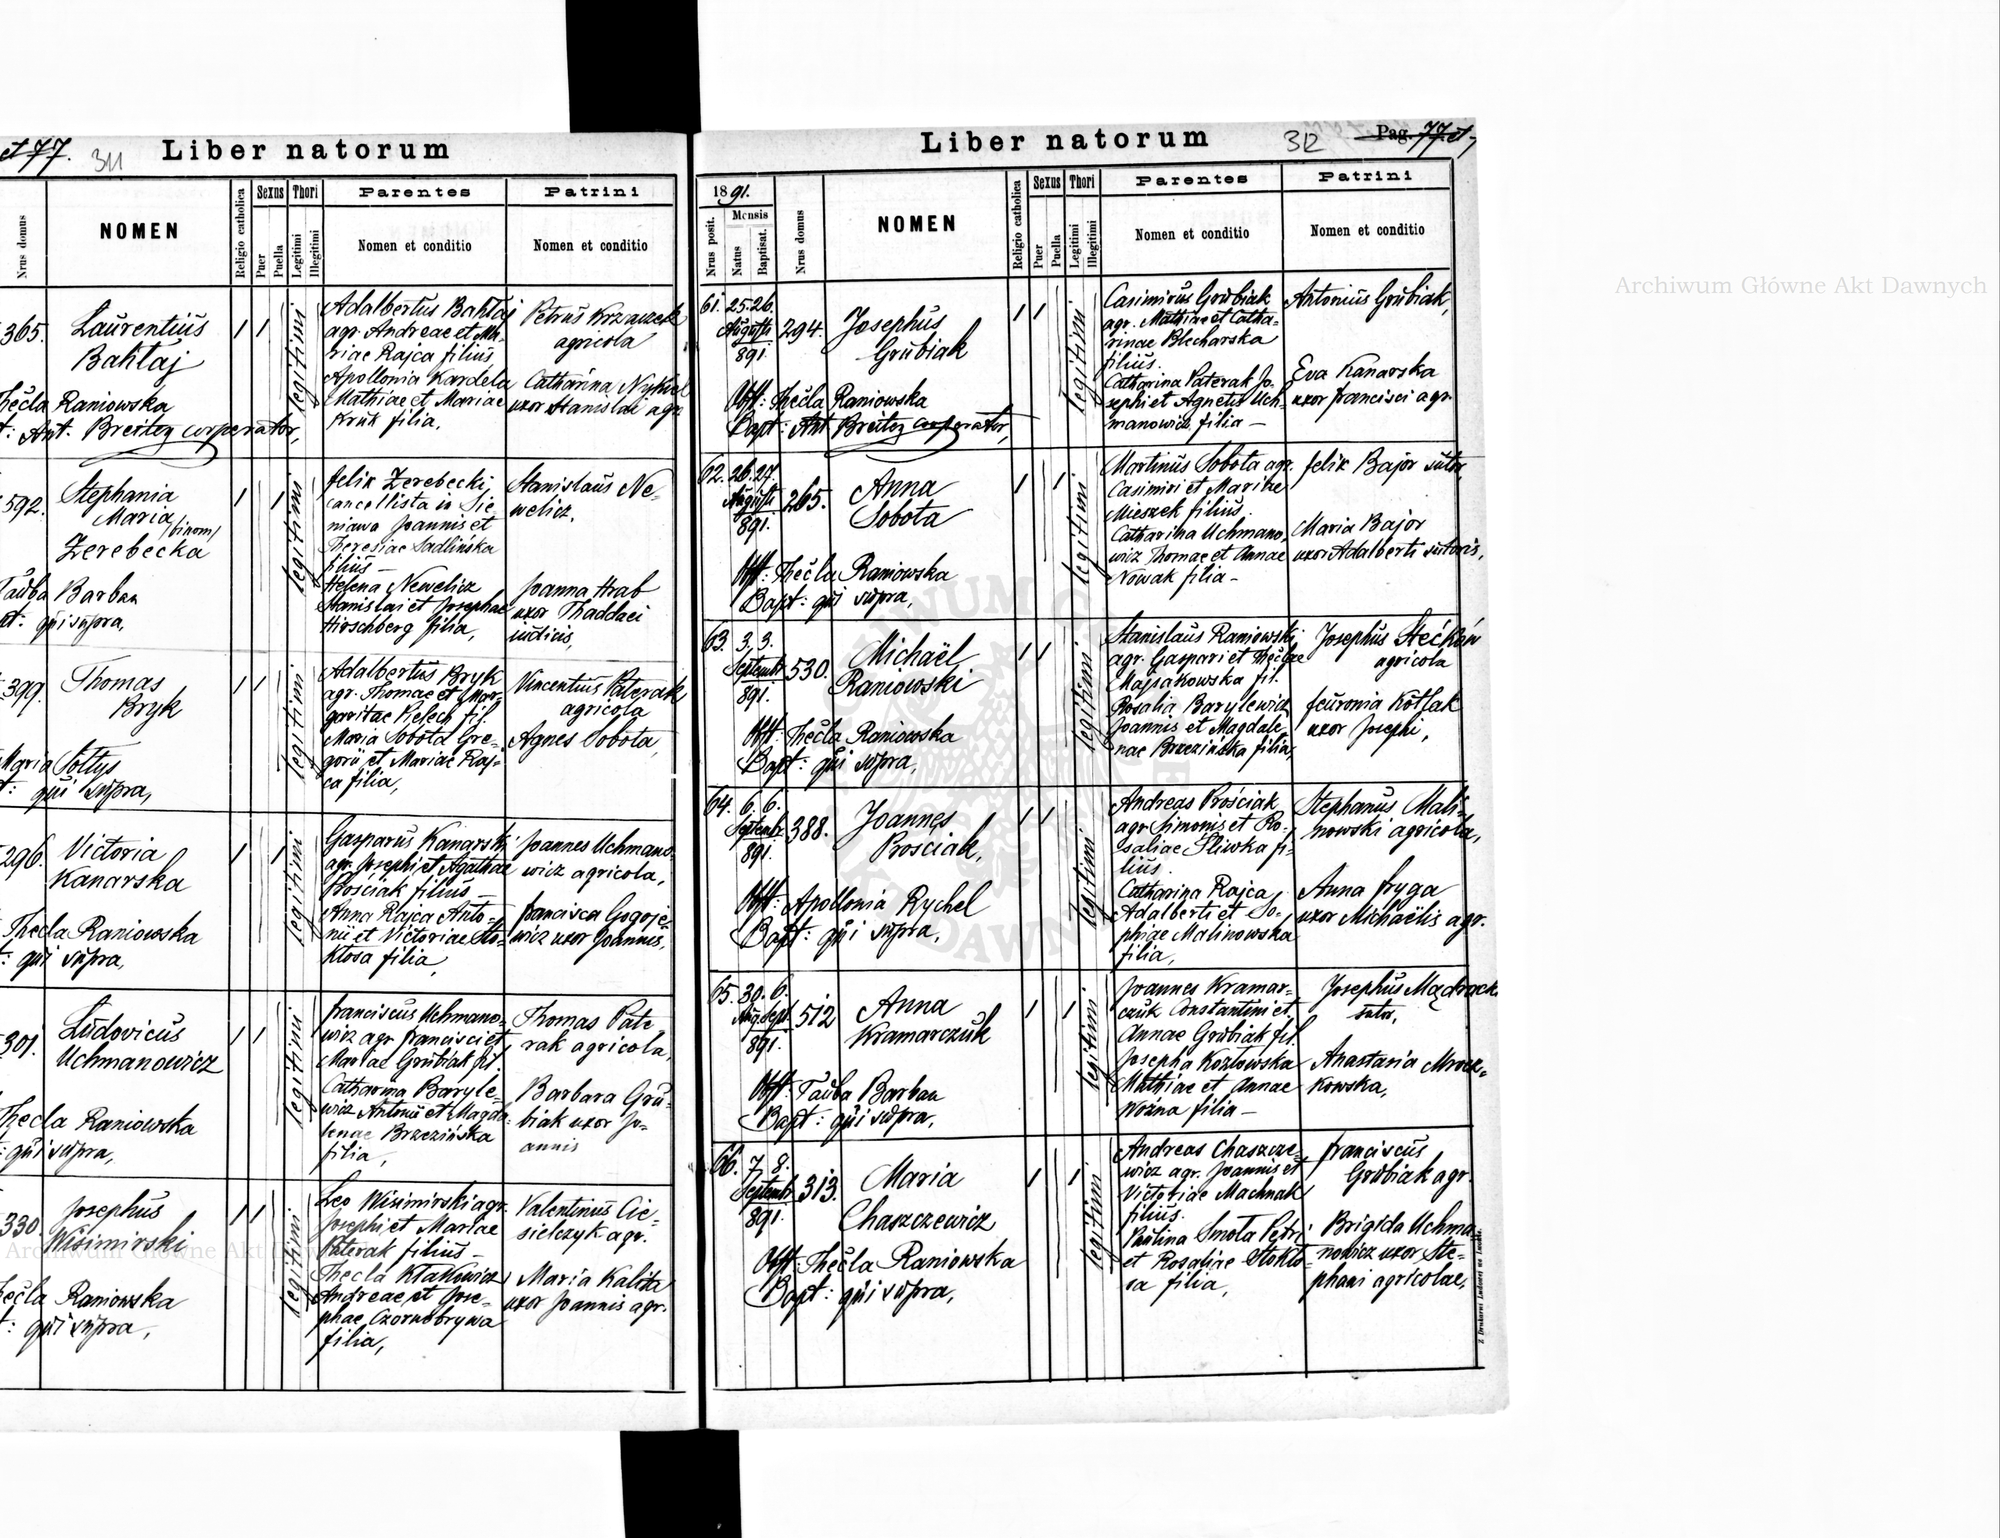 et 77.
311
Liber natorum
Nrus domus
NOMEN
Religio catholica
Sexus
Puer
Puella
Thori
Legitimi
Illegitimi
Parentes
Nomen et conditio
Patrini
Nomen et conditio
365.
Laurentius
Bahtaj
legitimi
Adalbertus Bahtaj
agr. Andreae et Ma-
riae Rajca filius
Apollonia Kardela
Mathiae et Mariae
Kruk filia,
Petrus Krzaczek
agricola
Catharina
uxor Stanislai agr.
Thecla Raniowska
Ant. Breitey corperator,
592.
Stephania
Maria /binom/
Zerebecka
legitimi
felix Zerebecki
cancellista in Sie-
niawa Joannis et
Theresiae Sadlińska
filius –
Helena Newelicz
Stanislai et Josephae
Hirschberg filia,
Stanislaus Ne-
welicz,
Joanna Hrab
uxor Thaddaei
iudicis,
Tauba Barban
qui supra,
399.
Thomas
Bryk
legitimi
Adalbertus Bryk
agr. Thomae et Mar-
garitae Pielech fil.
Maria Sobota Gre-
gorii et Mariae Raj-
ca filia,
Vincentius Paterak
agricola
Agnes Sobota,
Maria Soltys
qui supra,
296.
Victoria
Kanarska
legitimi
Gasparus Kanarski
agr. Josephi et Agathae
Prosciak filius –
Anna Rajca Anto-
nii et Victoriae Sto-
ktosa filia,
Joannes Uchmano-
wicz agricola,
francisca Gogoje-
wicz uxor Joannis,
Thecla Raniowska
qui supra,
301.
Ludovicus
Uchmanowicz
legitimi
franciscus Uchmano-
wicz agr. francisci et
Mariae Grubiak fil.
Catharina Baryle-
wicz Antonii et Magda-
lenae Brzezińska
filia,
Thomas Pate-
rak agricola,
Barbara Gru-
biak uxor Jo-
annis
Thecla Raniowska
qui supra,
330.
Josephus
Wisimirski
legitimi
Leo Wisimirski agr.
Josephi et Mariae
Paterak filius –
Thecla Kłakowicz
Andreae et Jose-
phae Czornobrywa
filia,
Valentinus Cie-
sielczyk agr.
Maria Kalita
uxor Joannis agr.
Thecla Raniowska
qui supra,
Liber natorum
312
Pag. 77 et
1891.
Nrus posit.
Mensis
Natus
Baptisat.
Nrus domus
NOMEN
Religio catholica
Sexus
Puer
Puella
Thori
Legitimi
Illegitimi
Parentes
Nomen et conditio
Patrini
Nomen et conditio
61. 25. 26.
Augusti
891.
294.
Josephus
Grubiak
legitimi
Casimirus Grubiak
agr. Mathiae et Catha-
rinae Blecharska
filius.
Catharina Paterak Jo-
sephi et Agnetis Uch-
manowicz filia –
Antonius Grubiak,
Eva Kanarska
uxor francisci agr.
Obst: Thecla Raniowska
Bapt: Ant Breitey corperator,
62. 26. 27.
Augusti
891.
265.
Anna
Sobota
legitimi
Martinus Sobota agr.
Casimiri et Mariae
Mieszek filius.
Catharina Uchmano-
wicz Thomae et Annae
Nowak filia –
felix Bajor sutor,
Maria Bajor
uxor Adalberti sutoris,
Obst: Thecla Raniowska
Bapt: qui supra,
63. 3, 3.
Septembr
891.
530.
Michaël
Raniowski
legitimi
Stanislaus Raniowski
agr. Gaspari et Theclae
Majsakowska fil.
Rosalia Barylewicz
Joannis et Magdale-
nae Brzezińska filia,
Josephus Stećków
agricola
feuronia Kotlak
uxor Josephi,
Obst: Thecla Raniowska
Bapt: qui supra,
64. 6. 6.
Septembr
891.
388.
Joannes
Prosciak,
legitimi
Andreas Prościak
agr. Simonis et Ro-
saliae Śliwka fi-
lius.
Catharina Rajca
Adalberti et So-
phiae Malinowska
filia,
Stephanus Mali-
nowski agricola,
Anna fryga
uxor Michaëlis agr.
Obst: Apollonia Rychel
Bapt: qui supra,
65. 30. 6.
Aug. Sept.
891.
512
Anna
Kramarczuk
legitimi
Joannes Kramar-
czuk Constantini et
Annae Grubiak fil.
Josepha Kozłowska
Mathiae et Annae
Woźna filia –
Josephus Mądrzak
sutor,
Anastasia Mrocz-
kowska,
Obst: Tauba Barban
Bapt: qui supra,
66. 7. 8.
Septembr
891.
313.
Maria
Chaszczewicz
legitimi
Andreas Chaszcze-
wicz agr. Joannis et
Victoriae Machnak
filius.
Paulina Smoła Petri
et Rosaliae Stokło-
sa filia,
franciscus
Grubiak agr.
Brigida Uchma-
nowicz uxor Ste-
phani agricolae,
Obst: Thecla Raniowska
Bapt: qui supra,
Archiwum Główne Akt Dawnych
Archiwum Główne Akt Dawnych